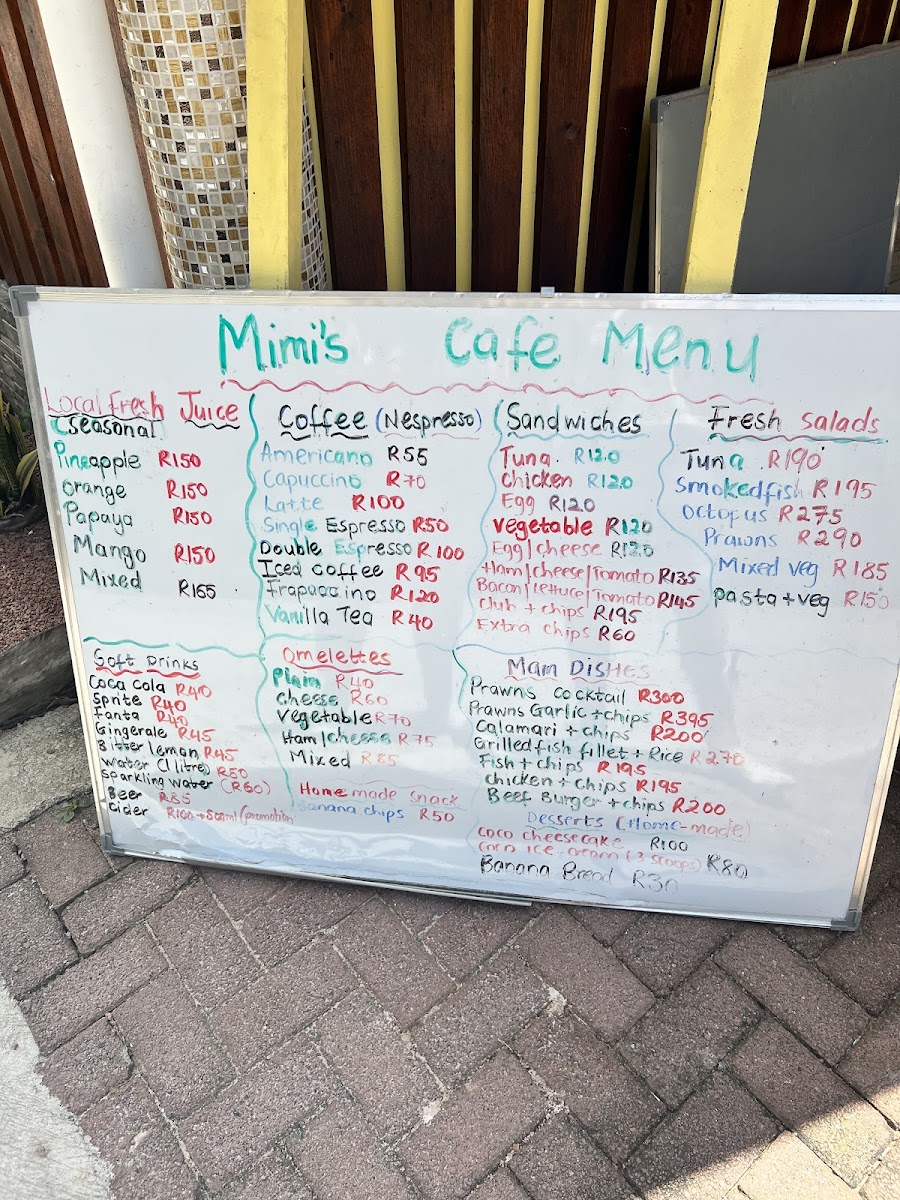 Mimi's Cafe Menu
Local fresh Juice
(seasonal
Pineapple R150
Orange R150
Papaya R150
Mango R150
Mixed R165
Coffee (Nespresso)
Americano R55
Capuccino R70
Latte R100
Single Espresso R50
Double Espresso R100
Iced coffee R95
Frapuccino R120
Vanilla Tea R40
Sandwiches
Tuna. R120
Chicken R120
Egg R120
vegetable R120
Egg/cheese R120
Ham/cheese/Tomato R135
Bacon/lettuce/Tomato R145
Club + chips R195
Extra chips R60
Fresh salads
Tuna R190
Smokedfish R195
Octopus R275
Prawns R290
Mixed veg R185
pasta+veg R150
Soft Drinks
Coca Cola R40
Sprite R40
Fanta R40
Gingerale R45
Bitter lemon R45
Water (1 litre) R50
Sparkling water (R60)
Beer R85
Cider R100 + 500ml (promotion
Omelettes
Plain R40
Cheese R60
Vegetable R70
Ham/cheese R75
Mixed R85
Homemade snack
Banana chips R50
Main Dishes
Prawns cocktail R300
Prawns Garlic+chips R395
Calamari + chips R200
Grilled fish fillet + Rice R270
Fish + chips R195
chicken + chips R195
Beef Burger + chips R200
Desserts (Home-made)
coco cheesecake R100
coco ice-cream (3 scoops) R80
Banana Bread R30